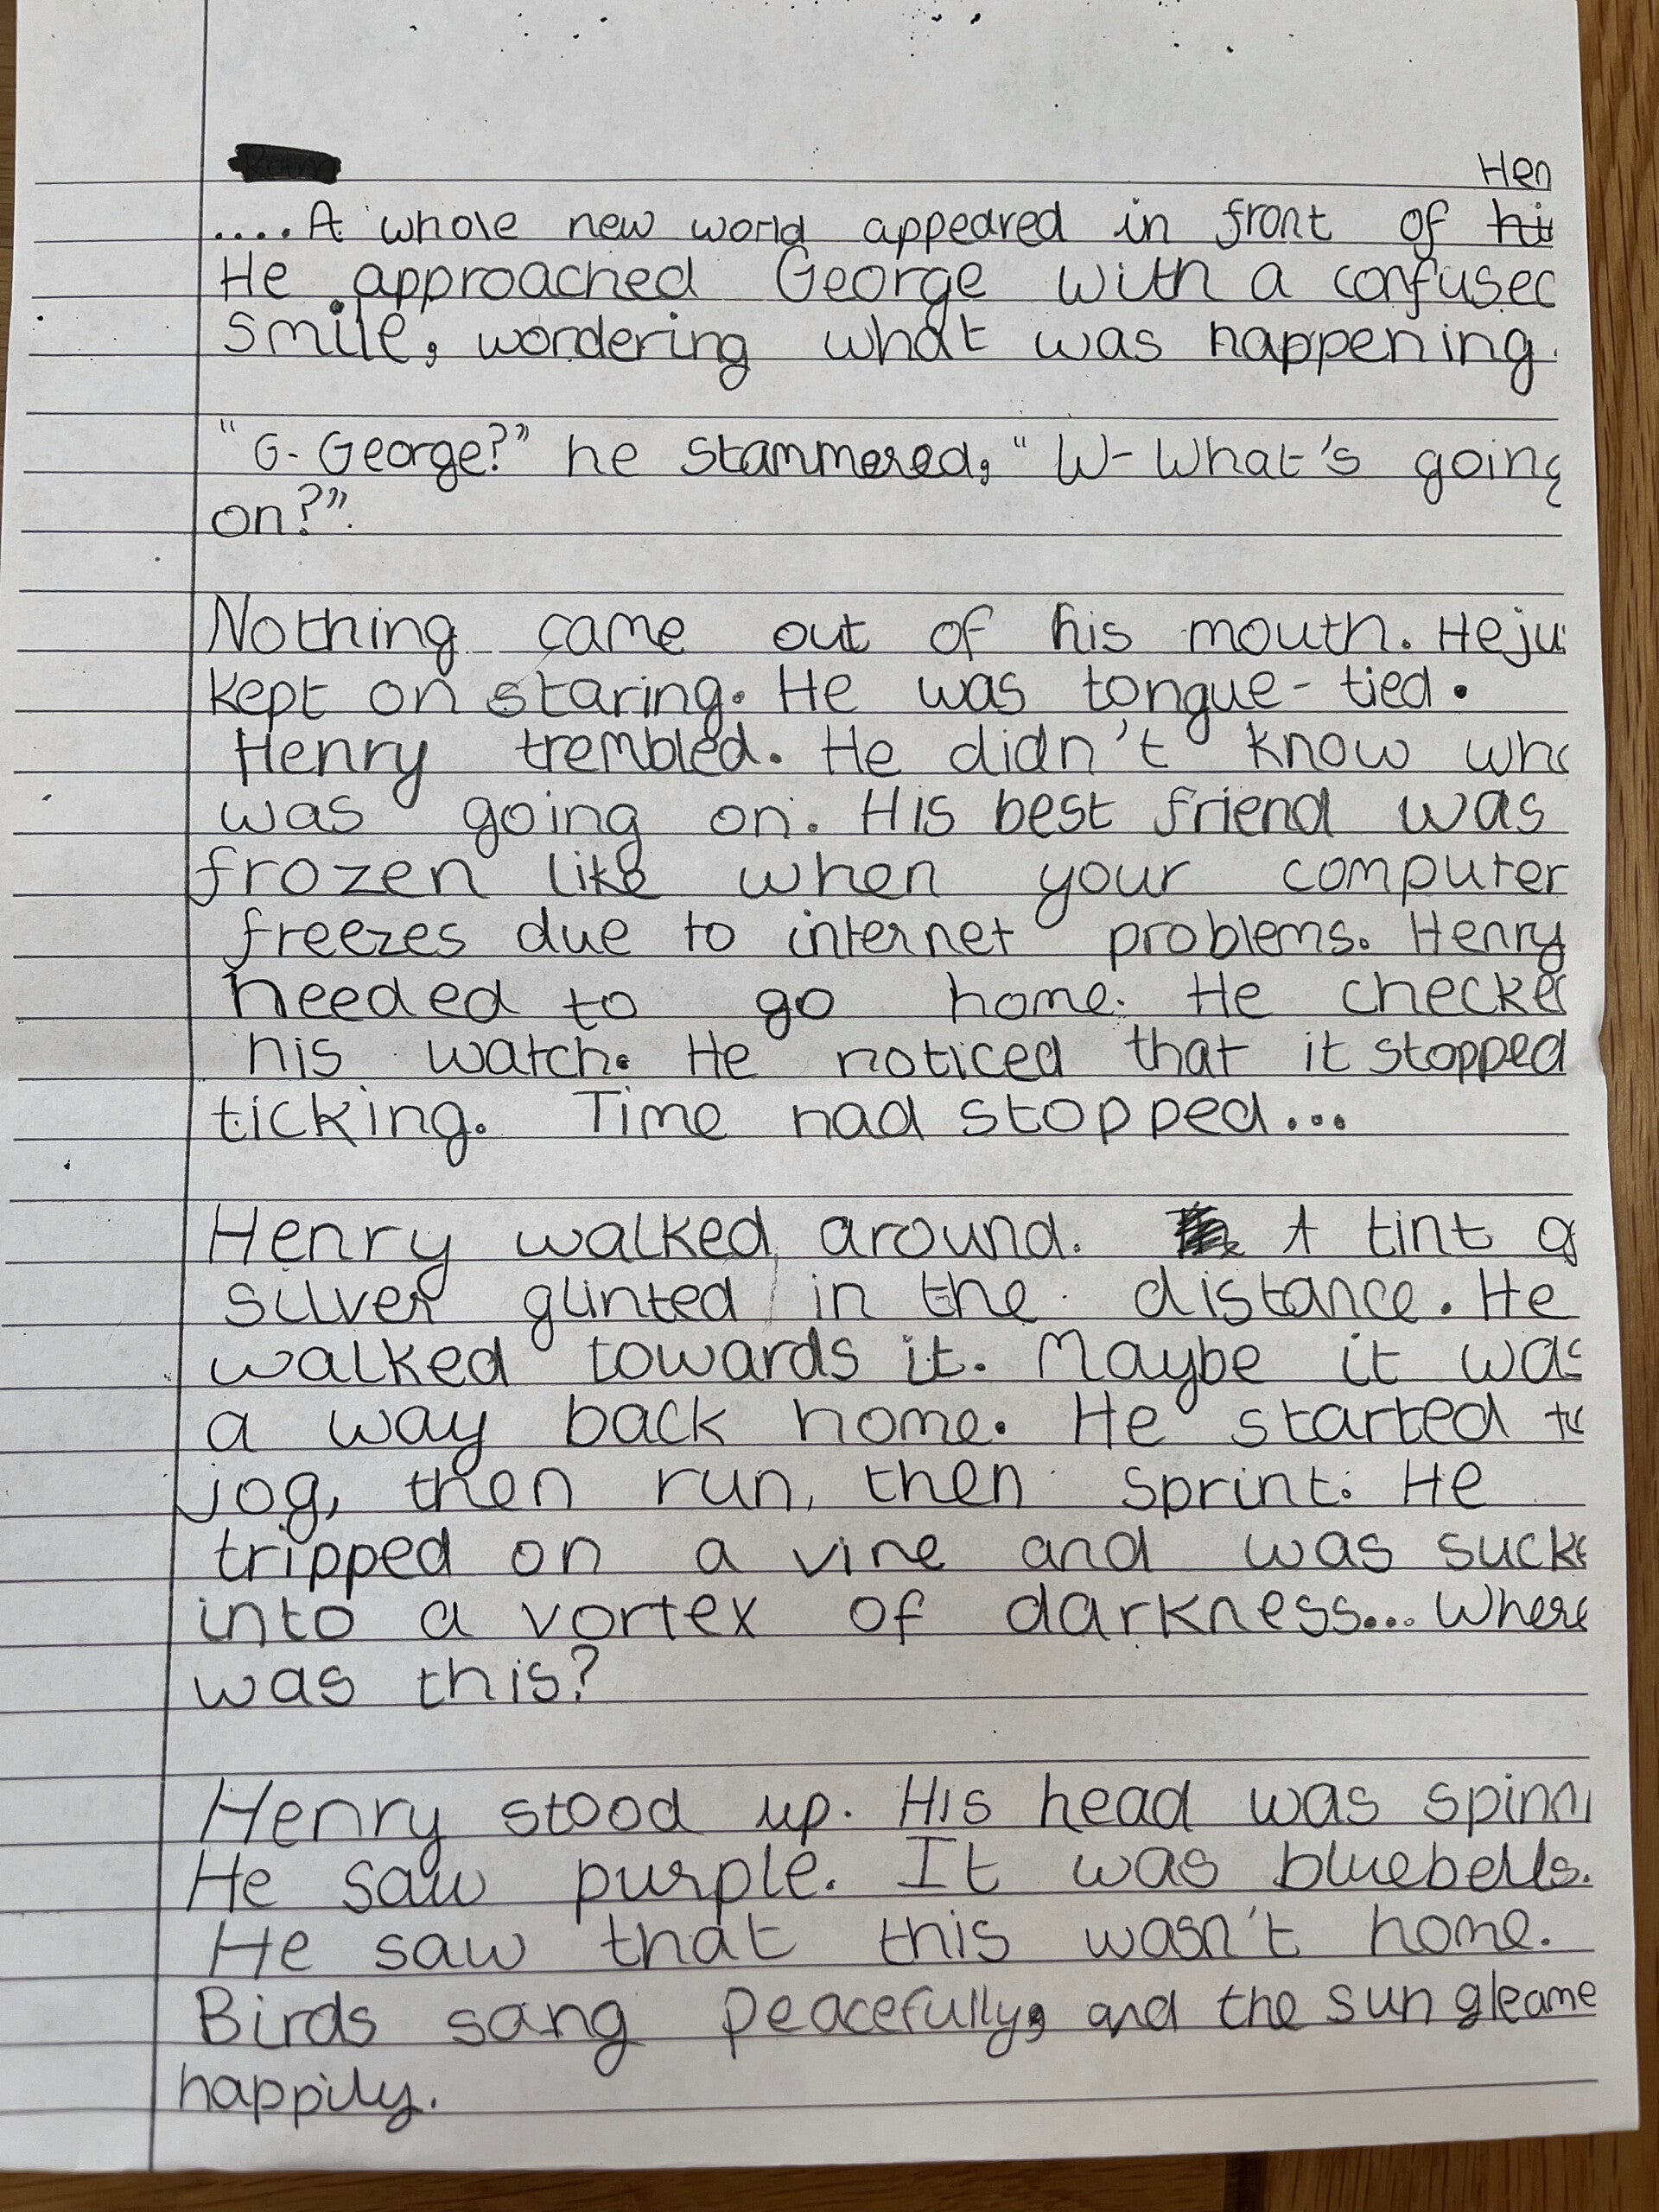 Hen
....A whole new world appeared in front of
He approached George with a confused
smile, wondering what was happening.
"G- George?" he stammered, "W- What's going
on?".
Nothing came out of his mouth. He ju
kept on staring. He was tongue- tied.
Henry trembled. He didn't know wha
was going on. His best friend was
frozen like when your computer
freezes due to internet problems. Henry
needed to go home. He checke
his watch. He noticed that it stopped
ticking. Time had stopped...
Henry walked around. A tint o
silver glinted in the distance. He
walked towards it. Maybe it was
a way back home. He started to
jog, then run, then sprint. He
tripped on a vine and was sucke
into a vortex of darkness... Where
was this?
Henry stood up. His head was spinni
He saw purple. It was bluebells.
He saw that this wasn't home.
Birds sang peacefully, and the sun gleame
happily.